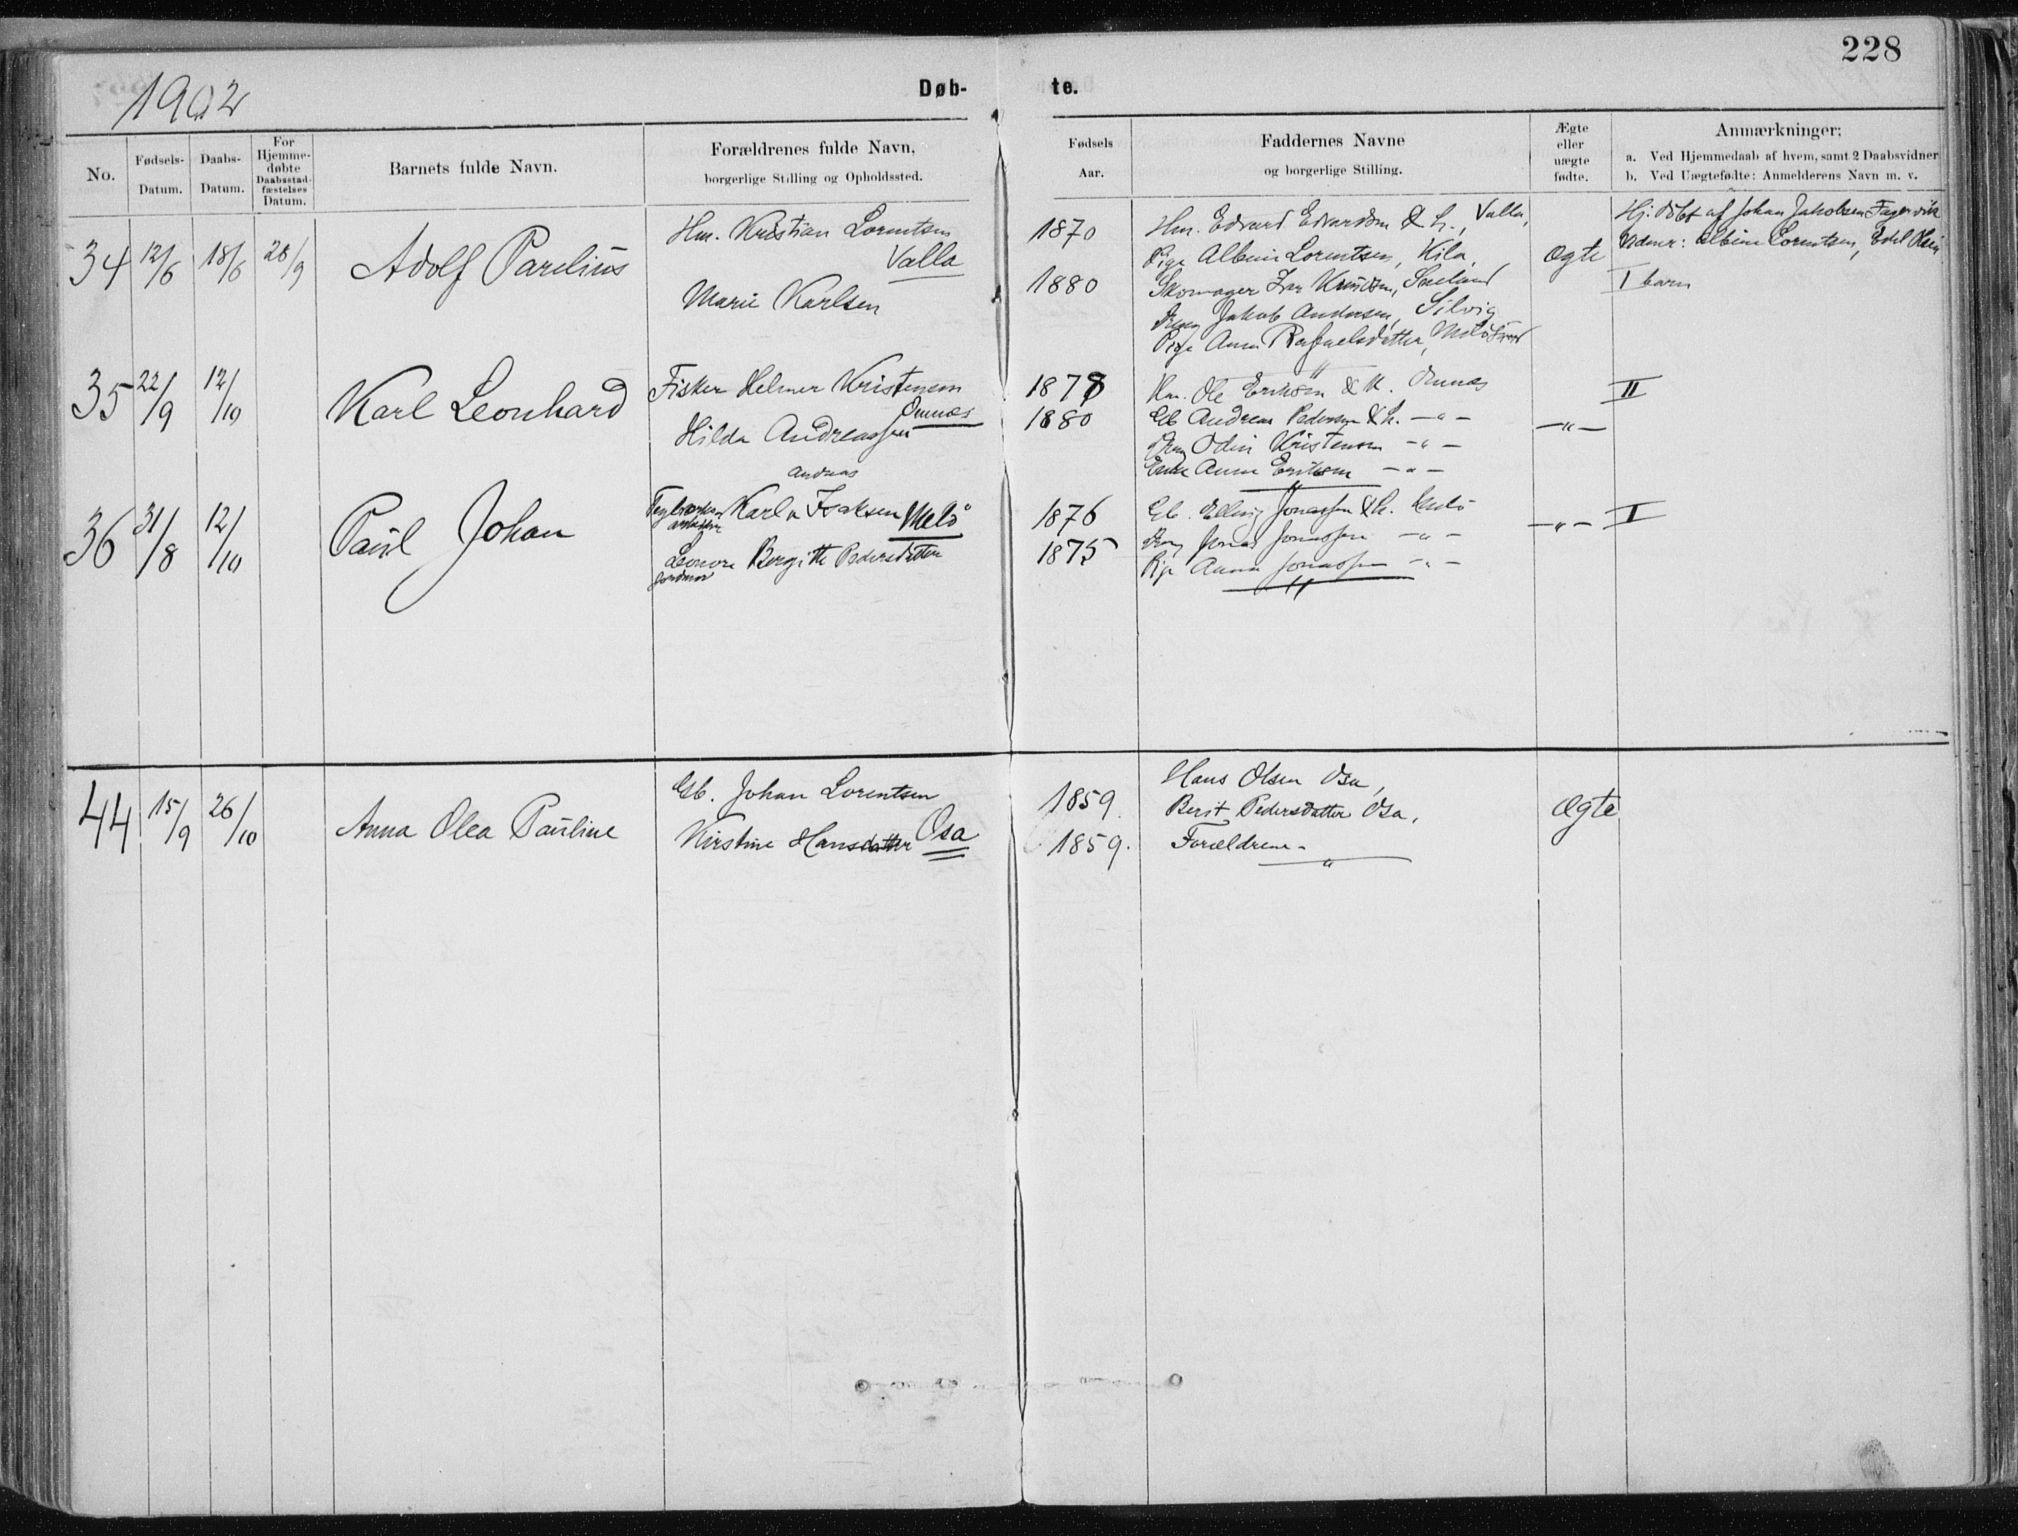 228
1902
Døb- te.
No.
Fødsels- Datum.
Daabs- Datum.
For Hjemme- døbte Daabsstad- fæstelses Datum.
Barnets fulde Navn.
Forældrenes fulde Navn,
borgerlige Stilling og Opholdssted.
Fødsels Aar.
Faddernes Navne
og borgerlige Stilling.
Ægte eller uægte fødte.
Anmærkninger:
a. Ved Hjemmedaab af hvem, samt 2 Daabsvidner
b. Ved Uægtefødte: Anmelderens Navn m. v.
34 12/6 18/6 28/9 Adolf Parelius
Hm. Kristian Lorentsen
Valla
Marie Karlsen
1870
1880
Hm. Edvard Edvardsen & h., Valla,
Pige Albine Lorentsen, Kila,
Skomager Knudsen,
Dreng Jakob Andersen, Silvig
Pige Anna Rafaelsdatter,
Ægte
Hj. døbt af Johan Jakobsen Fagervik
Vidner: Albine Lorentsen, Edel
I barn
35 22/9 12/10 Karl Leonhard
Fisker Helmer Kristensen
Ømnæs
Hilda Andreassen
1878
1880
Hm. Ole Eriksen & K. Ømnæs
Gb. Andreas Pedersen & h. — " —
Dreng Odin Kristensen — " —
Enke Anna Eriksen — " —
— " —
II
36 31/8 12/10 Paul Johan
Andreas
Teglværks- arbeider Karl Isaksen Melø
Leonore Bergitte Pedersdatter
Jordmor
1876
1875
Gb. Elling Jonassen & h. Melø
Dreng Jonas Jonassen — " —
Pige Anna Jonassen — " —
— " —
I
44 15/9 26/10 Anna Olea Pauline
Gb. Johan Lorentsen
Kirstine Hansdatter Osa
1859.
1859.
Hans Olsen Osa,
Berit Pedersdatter Osa,
Forældrene.
"
Ægte